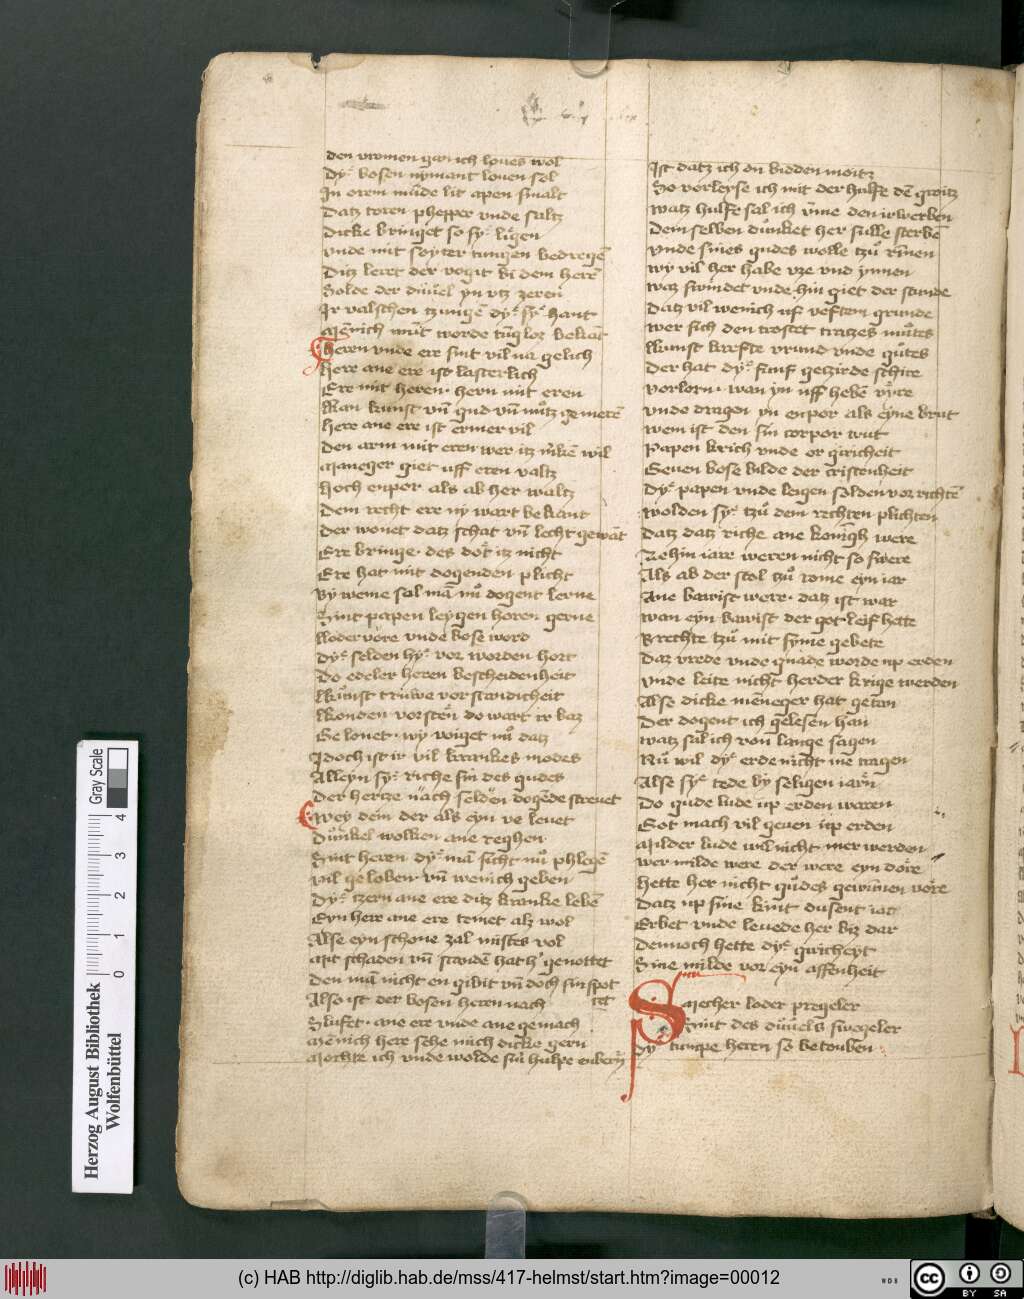 den vromen gan ich loues wol
Dye bosen nymant louen sol
In erem munde lit apen smalt
Datz toren phepper vnde saltz
Dicke bringet so sye ligen
vnde mit soyter tungen bedregē
Ditz leret der vogit bi dem herē
Solde der duuel yn vtz zeren
Ir valschen tzungē dye sye hant
Mēnich must worde tūgloz bekāt
Heren vnde ere sint vil na gelich
Here ane ere ist lasterlich
Ere mit heren hern mit eren
Man kunst vn̄ gud vn̄ mutz gemerē
Here ane ere ist ermer vil
Den arm mit eren wer itz mkē wil
Maneger giet uff eren valtz
Hoch enpor als ab her waltz
Dem recht ere ny wart bekant
Der wonet datz schat vn̄ lecht gewāt
Ere bringe des dot itz nicht
Ere hat mit dogenden plicht
By weme sal mā nu dogent lerne
Sint papen leygen horen gerne
Loder vore vnde bose word
Dye selden hye vor worden hort
Do edeler heren bescheidenheit
Kunst truwe vorstandicheit
Konden vorsten do wart ir baz
Gelouet wy voiget nu datz
Idoch ist ir vil krankes modes
Alleyn sye riche sin des gudes
Der hertze nach selden dogēde streuet
Owey dem der als eyn ve leuet
Dunkel wolken ane reghen
Sint heren dye mā sicht nu phlegē
vil geloben vn̄ wenich geben
Dye tzern ane ere ditz kranke lebē
Eyn here ane ere temet alz wol
Alse eyn schone zal mistes vol
Mit schaden vn̄ scanden hath genottet
Den mā nicht en gibit vn̄ doch sin spot
tet
Also ist der bosen heren nach
Slufet ane ere vnde ane gemach
Menich here sehe mich dicke gern
Mochte ich vnde wolde sin hulpe enbern
Ist datz ich en bidden moitz
So vorleyse ich mit der hulfe dē groitz
watz hulfe sal ich vnne den irwerben
Dem selben dunket her sulle sterbē
vnde sines gudes wolle tzu rinen
wy vil her habe vze vnd ynnen
waz swindet vnde hin giet der stunde
Datz vil wenich uf vestem grunde
wer sich den trostet tratzes mutes
Kunst krefte vrund vnde gutes
Der hat dye funf getzirde schire
vorlorn wan yn uff hebē vyre
vnde dragen yn enpor als eyne brut
wem ist den sin corper wut
Papen krich vnde er giricheit
Geuen bose bilde der cristenheit
Dye papen vnde leigen solden vor richtē
wolden sye tzu dem rechten plichten
Datz datz riche ane konigh were
Zehin iare weren nicht so swere
Als ab der stol tzu rome eyn iar
Ane bawist were datz ist war
wan eyn bawist der got leif hette
Brechte tzu mit syme gebete
Daz vrede vnde gnade worde up erden
vnde leite nicht herder krige werden
Alse dicke meneger hat getan
Der dogent ich gelesen han
watz sal ich von lange sagen
Nu wil dye erde nicht me tragen
Alse sye tede by seligen iarn
Do gude lude up erden waren
Got mach vil geuen up erden
Milder lude wil nicht mer werden
wer milde were der were eyn dore
Hette her nicht gudes gewunnen vore
Datz up sine kint dusent iar
Erbet vnde leuede her biz dar
Dennoch hette dye giricheyt
Sine milde vor eyn affenheit
Smecher loder pregeler
Sint des duuels swegeler
Dye tumpe heren so betouben
Herzog August Bibliothek
Wolfenbüttel
Gray Scale
0 1 2 3 4
(c) HAB http://diglib.hab.de/mss/417-helmst/start.htm?image=00012
WDB
CC BY SA